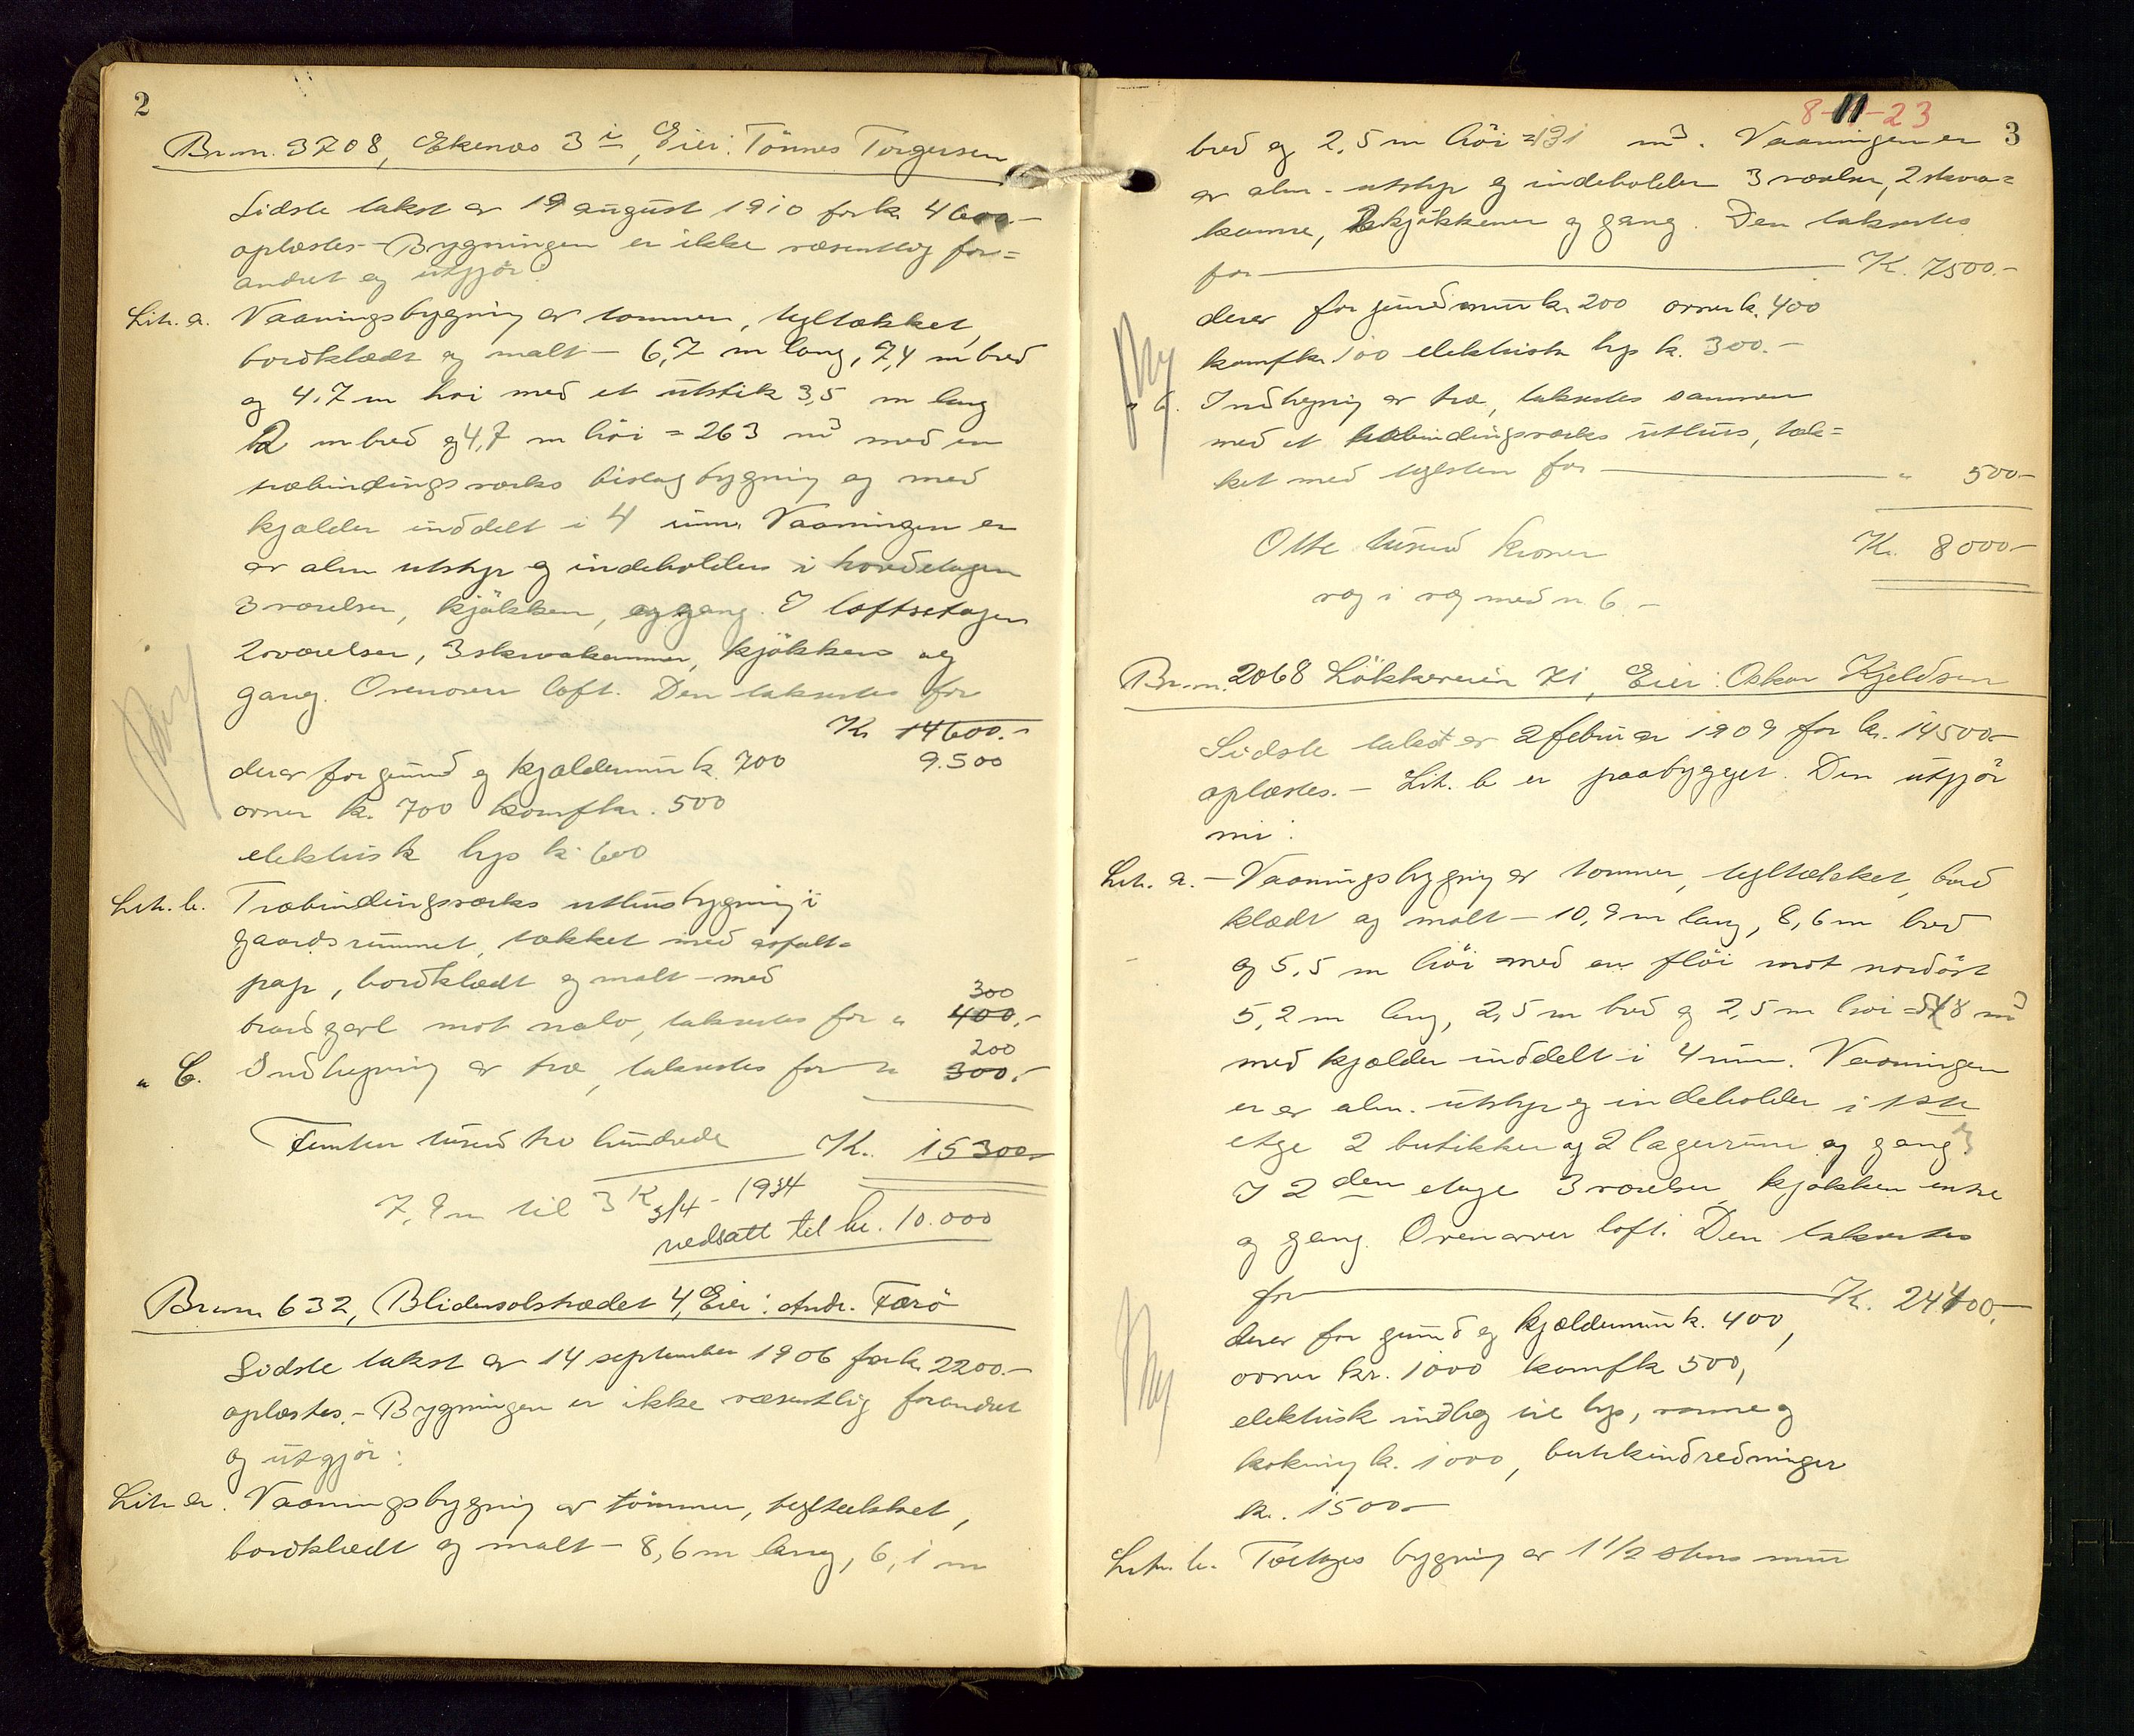 2
Br.nr. 3708, Ekenæs 3 i, Eier: Tönnes Torgersen
Sidste takst av 19 august 1910 for kr. 4600.-
oplæstes. - Bygningen er ikke væsentlig for=
andret og utgjör:
Litr. a. Vaaningsbygning av tømmer, tegltækket,
bordklædt og malt - 6,7 m lang, 7,4 m bred
og 4.7 m höi med et utstik 3,5 m lang
2 m bred og 4,7 m höi = 263 m3 med en
træbindingsverks bislagbygning og med
kjælder inddelt i 4 rum. Vaaningen er
av alm utstyr og indeholder i hovedetagen
3 værelser, kjökken, og gang. I loftsetagen
2 værelser, 3 skraakammer, kjökken og
gang. Ovenover loft. Den takseres for
Kr. 14600.-
derav for grund og kjældermur k. 700 9.500
ovner k. 700 komfkr. 500
elektrisk lys k. 600
Litr. b. Træbindingsverks uthusbygning i
gaardsrummet, tækket med asfalt=
pap, bordklædt og malt - med
brandgavl mot nabo, takseres for " 400.- 300
" C. Indhegning av træ, takseres for " 300.- 200
Femten tusind tre hundrede Kr. 15300.-
7,9 m til 3 K
3/4 - 1934
nedsatt til kr. 10.000
Br.nr. 632, Blidensolstrædet 4, Eier: Andr. Færö
Sidste takst av 14 september 1906 for kr. 2200.-
oplæstes. - Bygningen er ikke væsentlig forandret
og utgjör:
Litr a. Vaaningsbygning av tömmer, tegltækket,
bordklædt og malt - 8,6 m lang, 6,1 m
8-11-23
3
bred og 2,5 m höi = 131 m3. Vaaningen er
av alm. utstyr og indeholder 3 værelser, 2 skraa=
kamre, 2 kjökkener og gang. Den takseres
for K. 7500.-
derav for grundmur kr. 200 ovner k. 400
komfkr. 100 elektrisk lys k. 300.-
" b. Indhegning av træ, takseres sammen
med et træbindingsverks uthus, tæk=
ket med teglsten for " 500.-
Otte tusind kroner Kr. 8000.-
væg i væg med n. 6.-
Br.nr. 2068 Lökkeveien 71, Eier: Oskar Kjeldsen
Sidste takst av 2 februar 1909 for kr. 14500.-
oplæstes. - Litr. b er paabygget. Den utgjör
nu:
Litr. a. - Vaaningsbygning av tømmer, tegltækket, bord
klædt og malt - 10,9 m lang, 8,6 m bred
og 5,5 m höi med en flöi mot nordöst
5,2 m lang, 2,5 m bred og 2,5 m höi = 548 m3
med kjælder inddelt i 4 rum. Vaaningen
er av alm. utstyr og indeholder i 1ste
etge 2 butikker og 2 lagerrum og gang
I 2den etage 3 værelser, kjökken entre
og gang. Ovenover loft. Den takseres
for K. 24400.-
derav for grund og kjældermur k. 400,
ovner kr. 1000 komfk 500,
elektrisk indlæg til lys, varme og
kokning k. 1000, butikindredninger
k. 1500.-
Litr. b. Toetages bygning av 1 1/2 stens mur